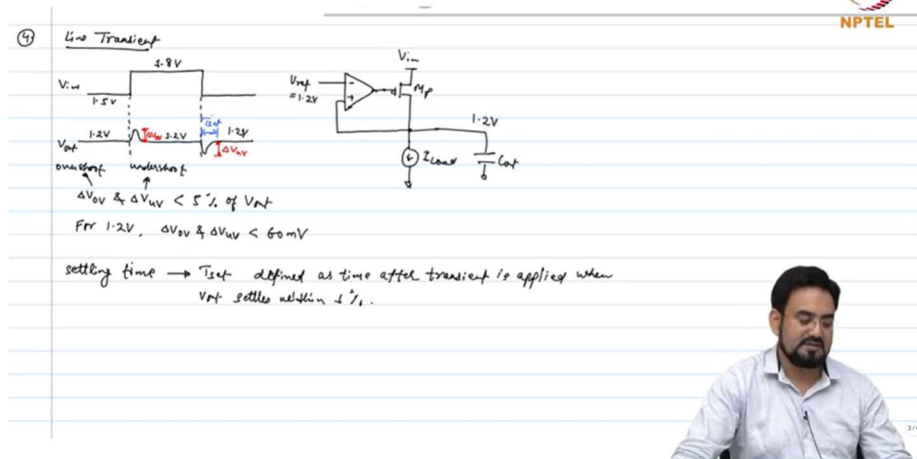 NPTEL
④ Line Transient
1.8V
Vin
1.5V
Tset
1.2V ΔVov 1.2V 1.2V
Vout
ΔVuv
overshoot undershoot
ΔVov & ΔVuv < 5% of Vout
For 1.2V, ΔVov & ΔVuv < 60mV
settling time → Tset defined as time after transient is applied when
Vout settles within 1%.
Vin
Vref
=1.2V
-
+
Mp
1.2V
ILoad
Cout